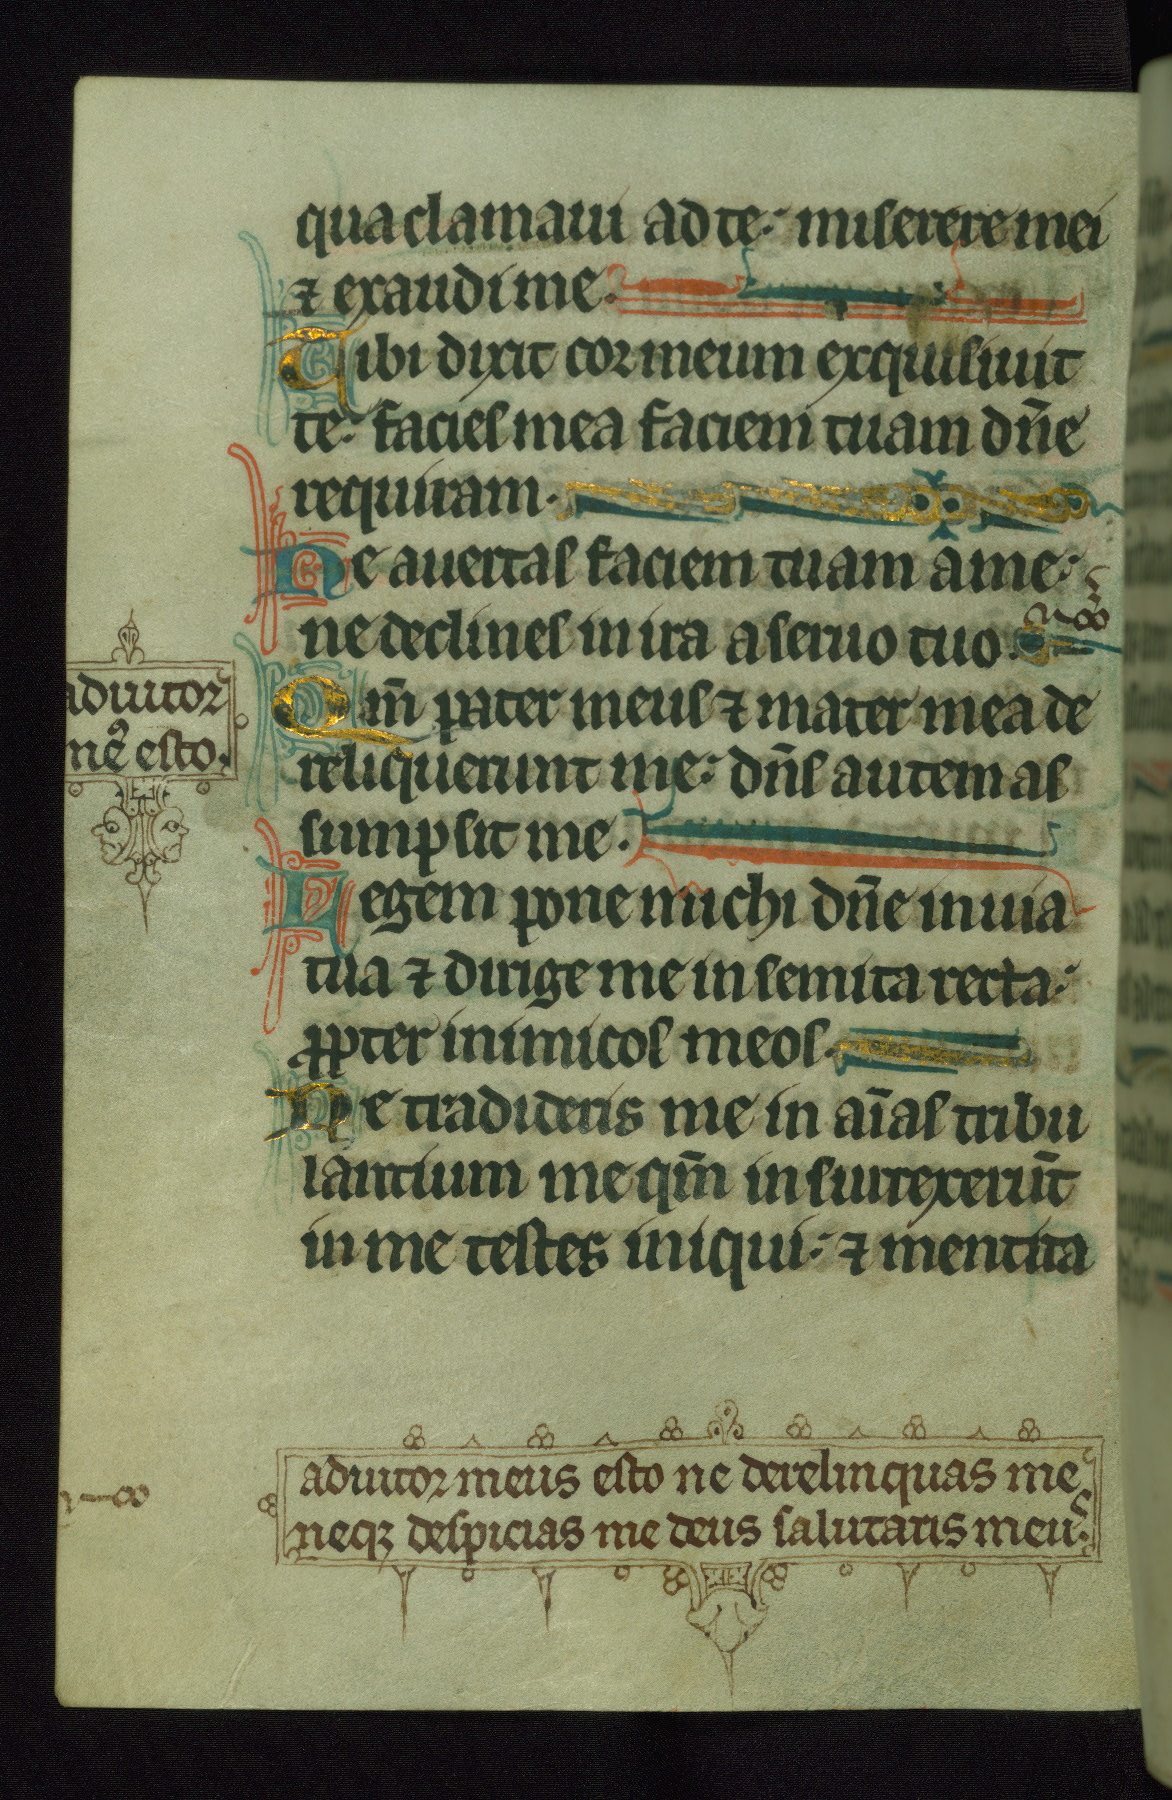 qua clamaui ad te: miserere mei
⁊ exaudi me.
Tibi dixit cor meum exquisiuit
te: facies mea faciem tuam dn̄e
requiram.
Ne auertas faciem tuam a me:
ne declines in ira a seruo tuo.
Qm̄ pater meus ⁊ mater mea de
reliquerunt me: dn̄s autem as
sumpsit me.
Legem pone michi dn̄e in uia
tua ⁊ dirige me in semita recta:
propter inimicos meos.
Ne tradideris me in aīas tribu
lantium me qm̄ insurrexerūt
in me testes iniqui: ⁊ mentita
adiutor
me᷒ esto.
adiutor meus esto ne derelinquas me
neqꝫ despicias me deus salutaris meus.